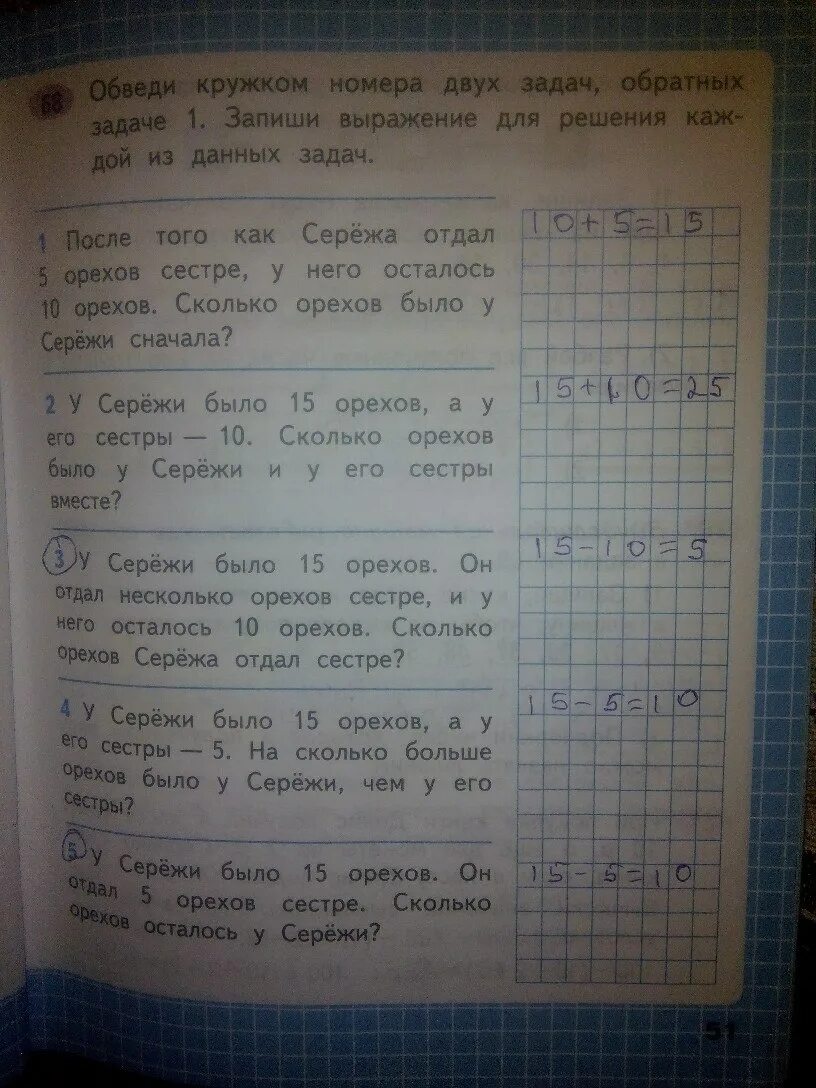 68 Обведи кружком номера двух задач, обратных
задаче 1. Запиши выражение для решения каж-
дой из данных задач.
1 После того как Серёжа отдал
5 орехов сестре, у него осталось
10 орехов. Сколько орехов было у
Серёжи сначала?
10+5=15
2 У Серёжи было 15 орехов, а у
его сестры — 10. Сколько орехов
было у Серёжи и у его сестры
вместе?
15+10=25
3 У Серёжи было 15 орехов. Он
отдал несколько орехов сестре, и у
него осталось 10 орехов. Сколько
орехов Серёжа отдал сестре?
15-10=5
4 У Серёжи было 15 орехов, а у
его сестры — 5. На сколько больше
орехов было у Серёжи, чем у его
сестры?
15-5=10
5 У Серёжи было 15 орехов. Он
отдал 5 орехов сестре. Сколько
орехов осталось у Серёжи?
15-5=10
51